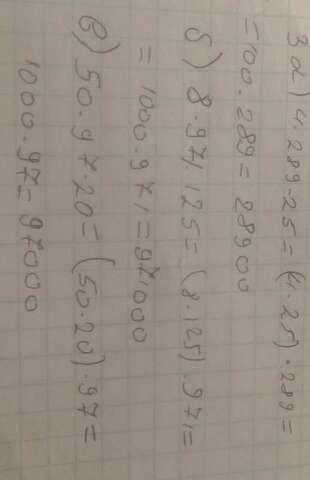 3 а) 4·289·25= (4·25)·289=
=100·289= 28900
б) 8·971·125= (8·125)·971=
= 1000·971=971000
в) 50·97·20= (50·20)·97=
1000·97=97000